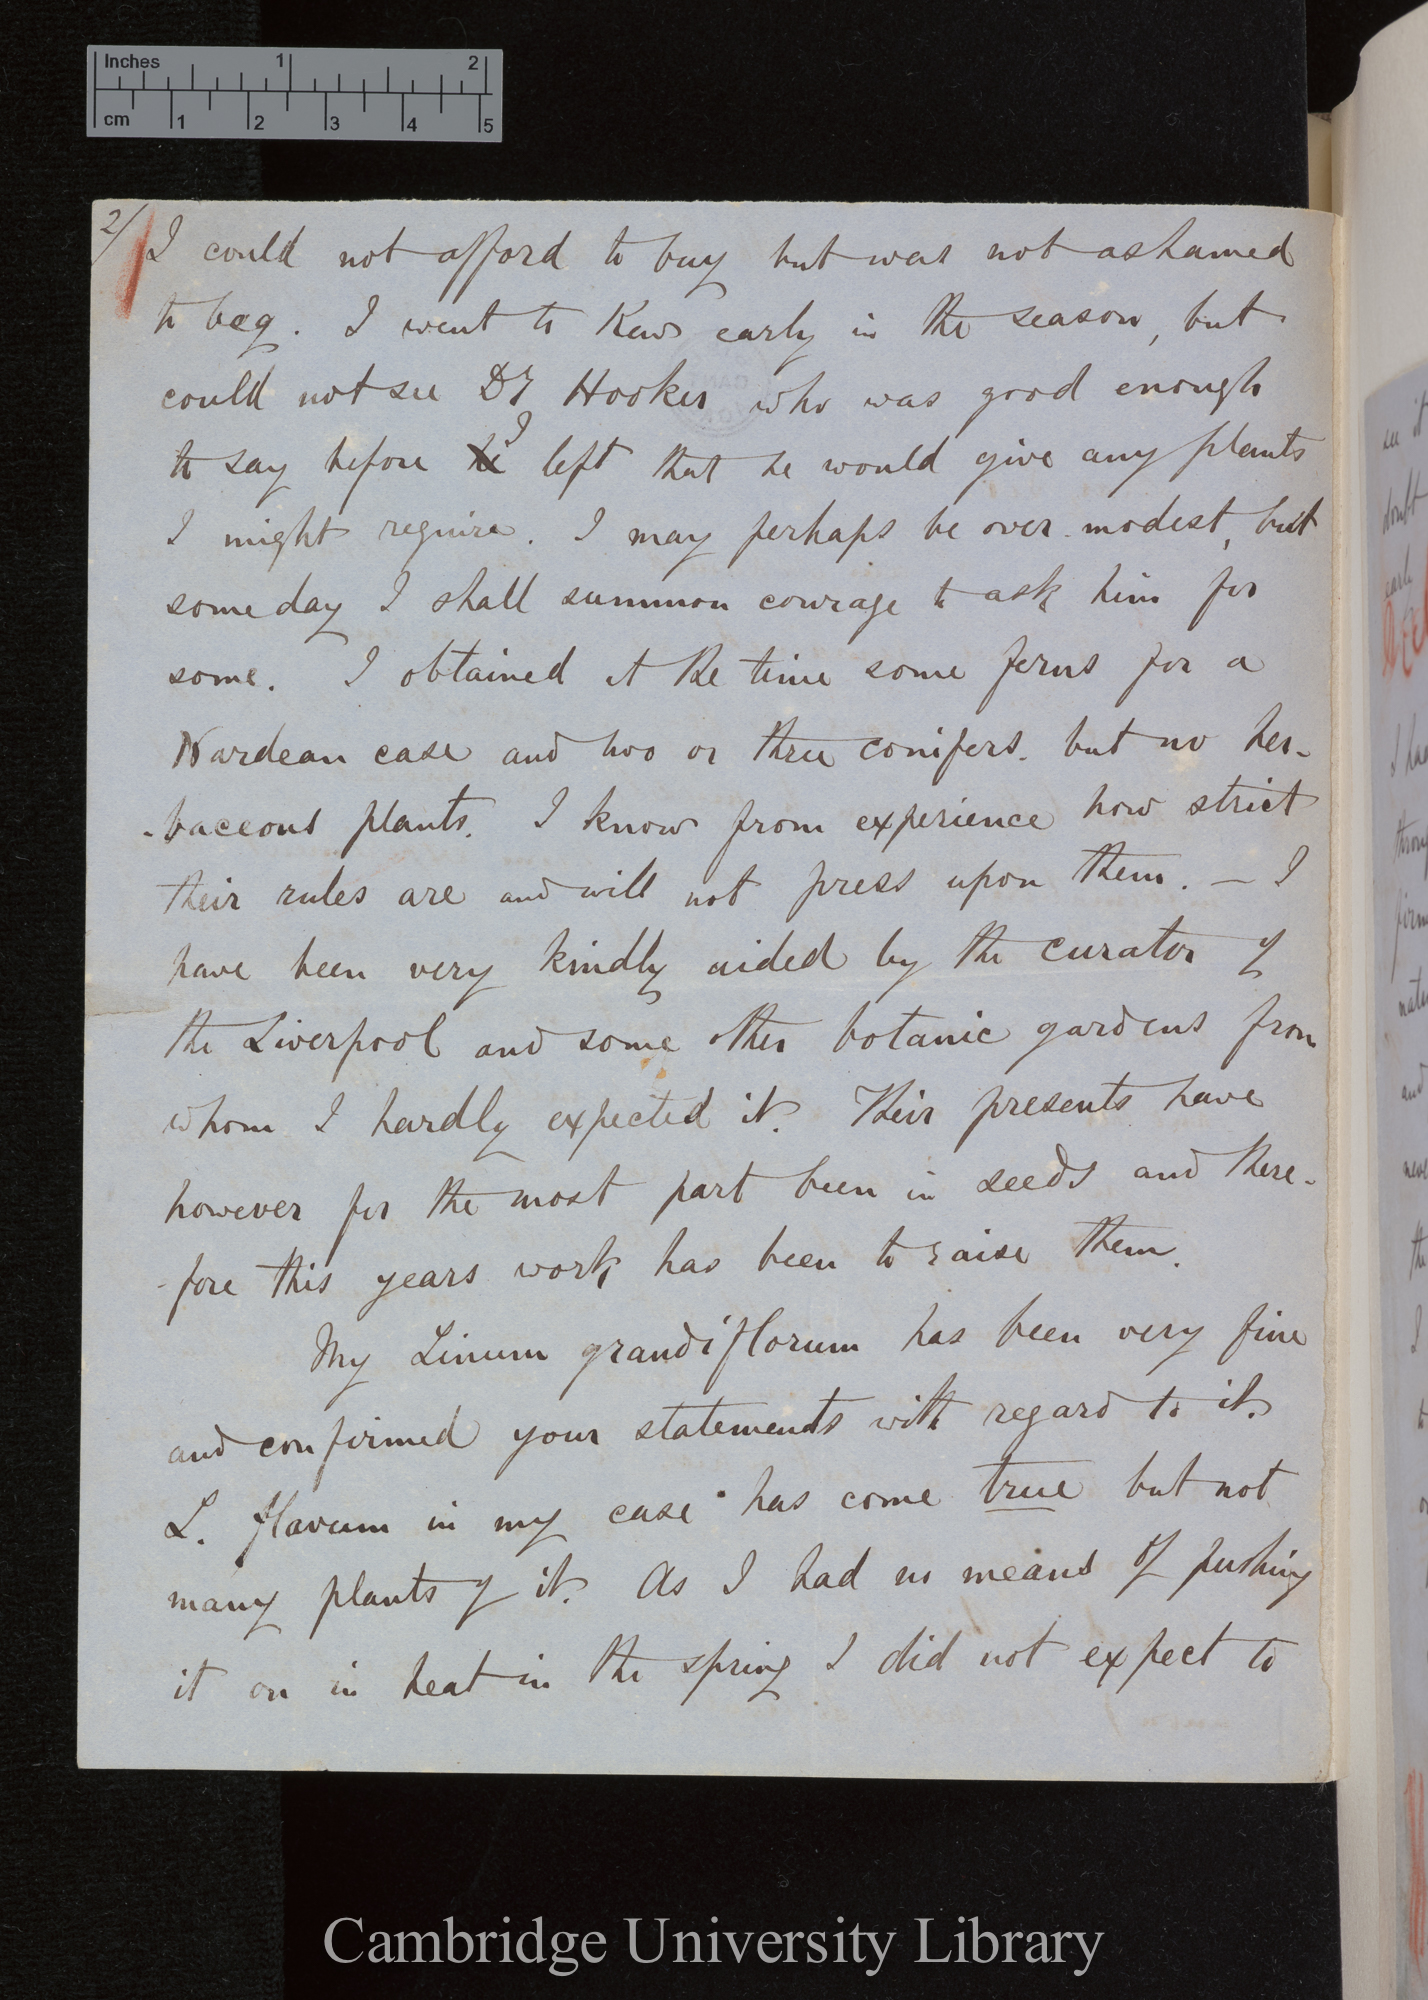 Inches 1 2
cm 1 2 3 4 5
2/ I could not afford to buy but was not ashamed
to beg. I went to Kew early in the season, but
could not see Dr Hooker who was good enough
to say before I left that he would give any plants
I might require. I may perhaps be over modest, but
some day I shall summon courage to ask him for
some. I obtained at the time some ferns for a
Wardean case and two or three conifers. but no her-
-baceous plants. I know from experience how strict
their rules are and will not press upon them. — I
have been very kindly aided by the curator of
the Liverpool and some other botanic gardens from
whom I hardly expected it. Their presents have
however for the most part been in seeds and there-
-fore this years work has been to raise them.
My Linum grandiflorum has been very fine
and confirmed your statements with regard to it.
L. flavum in my case has come true but not
many plants of it. As I had no means of pushing
it on in heat in the spring I did not expect to
see it
doubt
early
I had
and
the
I
Cambridge University Library